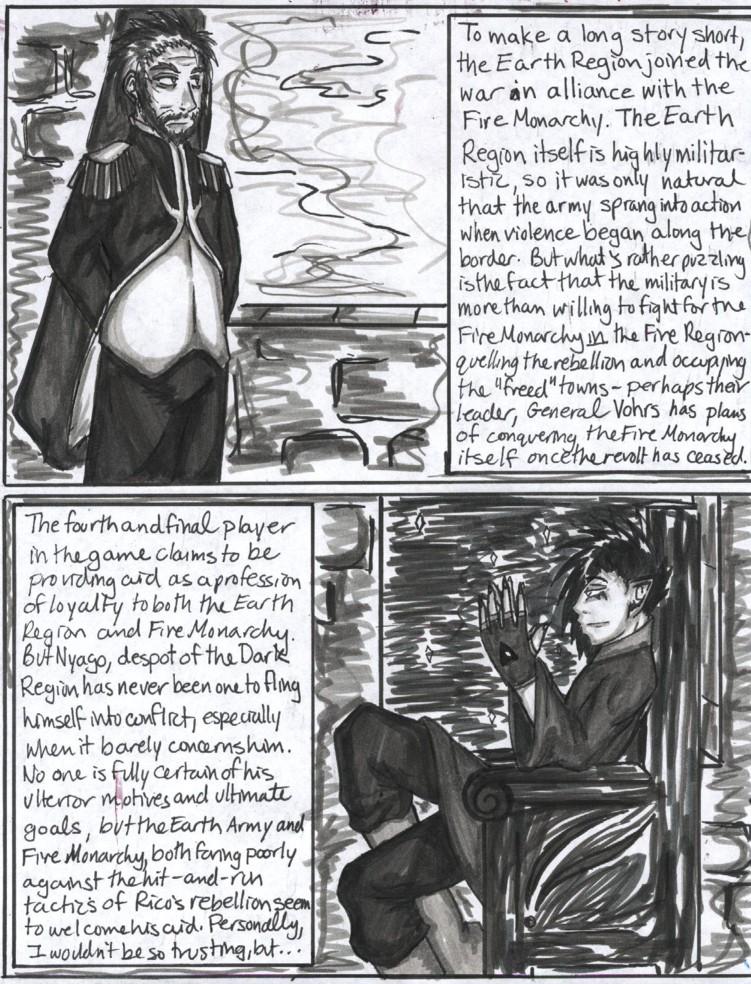 To make a long story short,
the Earth Region joined the
war in alliance with the
Fire Monarchy. The Earth
Region itself is highly militar-
istic, so it was only natural
that the army sprang into action
when violence began along the
border. But what's rather puzzling
is the fact that the military is
more than willing to fight for the
Fire Monarchy in the Fire Region-
quelling the rebellion and occupying
the "freed" towns - perhaps their
leader, General Vohrs has plans
of conquering the Fire Monarchy
itself once the revolt has ceased.
The fourth and final player
in the game claims to be
providing aid as a profession
of loyalty to both the Earth
Region and Fire Monarchy.
But Nyago, despot of the Dark
Region has never been one to fling
himself into conflict, especially
when it barely concerns him.
No one is fully certain of his
ulterior motives and ultimate
goals, but the Earth Army and
Fire Monarchy, both faring poorly
against the hit-and-run
tactics of Rico's rebellion seem
to welcome his aid. Personally,
I wouldn't be so trusting, but...